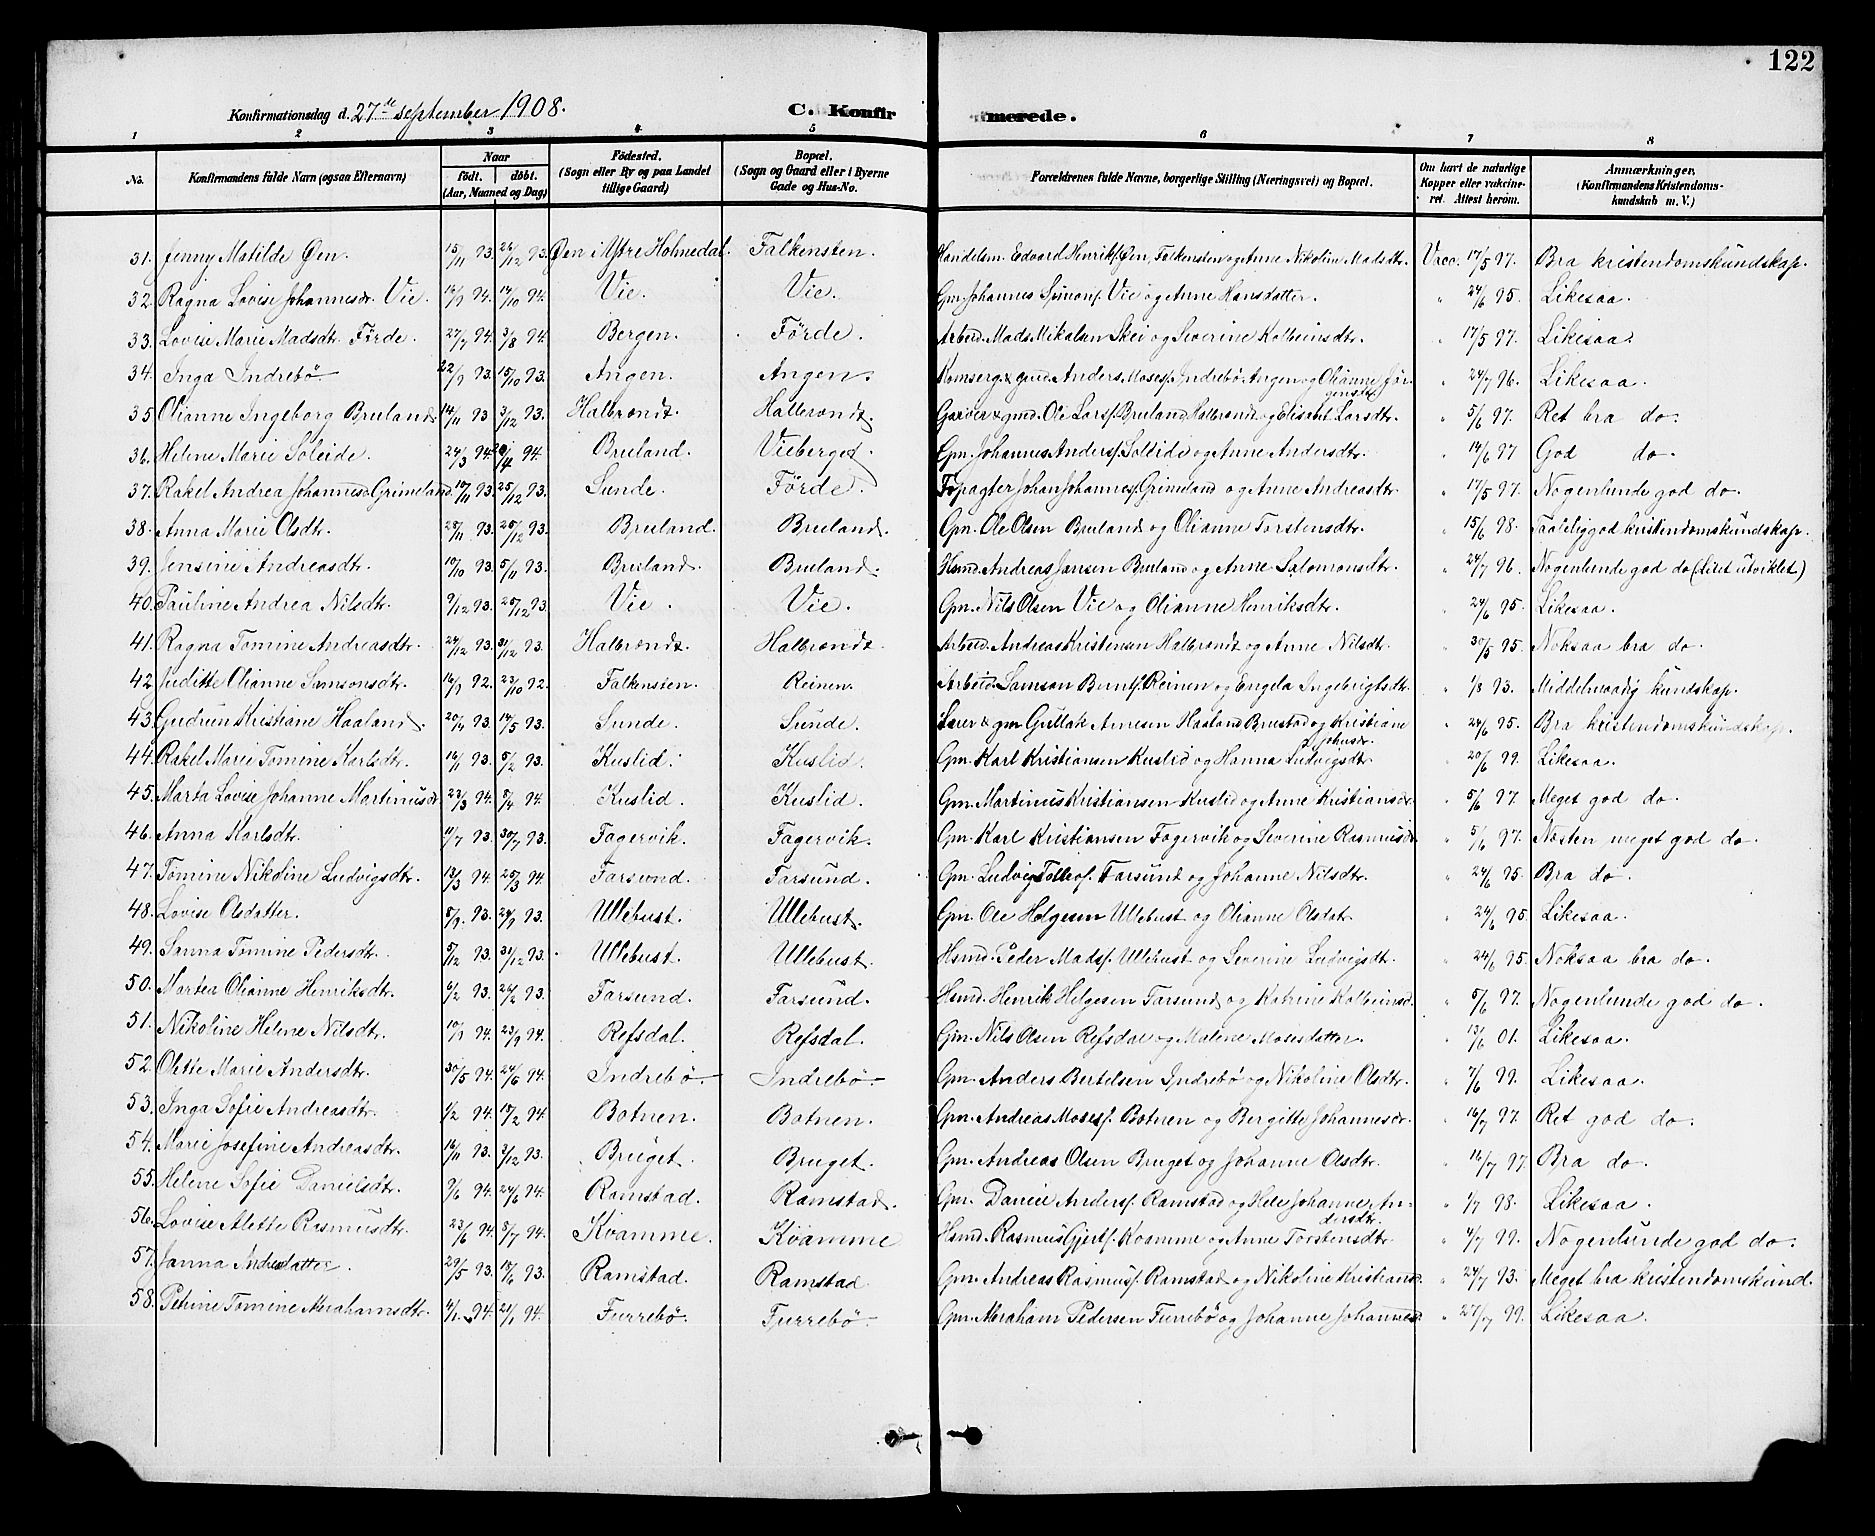 122
Konfirmationsdag d. 27de september 1908. C. Konfirmerede.
1 2 3 4 5 6 7 8
No. Konfirmandens fulde Navn (ogsaa Efternavn) Naar födt. döbt. (Aar, Maaned og Dag) Födested. (Sogn eller By og paa Landet tillige Gaard) Bopæl. (Sogn og Gaard eller i Byerne Gade og Hus-No. Forældrenes fulde Navne, borgerlige Stilling (Næringsvei) og Bopæl. Om havt de naturlige Kopper eller vakcineret. Attest herom. Anmærkninger. (Konfirmandens Kristendomskundskab m. V.)
31. Jenny Matilde Øen. 15/11 93. 26/12 93. Øen i Ytre Holmedal. Falkensten. Handelsm. Edvard Henriks. Øen, Falkensten og Anne Nikoline Madsdtr. Vacc. 17/5 97. Bra kristendomskundskap.
32. Ragna Lovise Johannesdr. Vie. 16/9 94. 14/10 94. Vie. Vie. Gm. Johannes Simons. Vie og Anne Hansdatter. " 24/6 95. Likesaa.
33. Lovise Marie Madsdt. Förde. 27/7 94. 3/8 94. Bergen. Förde. Arbeid. Mads Mikalsen Skei og Severine Kolbeinsdtr. " 17/5 97. Likesaa.
34. Inga Indrebö 22/9 93. 15/10 93. Angen. Angen. Romserg. & gmd. Anders Moses. Indrebö Angen og Olianne Jörgensdtr. " 24/7 96. Likesaa.
35. Olianne Ingeborg Bruland 14/11 93 3/12 93. Halbrendt. Halbrendt. Garver & gmd. Ole Lars. Bruland, Halbrendt og Elisabet Larsdtr. " 5/6 97. Ret bra do.
36. Helene Marie Soleide. 24/3 94. 8/4 94. Bruland. Vieberget. Gm. Johannes Anders. Solleide og Anne Andersdtr. " 14/6 97 God do.
37. Rakel Andrea Johannesd. Grimeland. 17/11 93. 25/12 93. Sunde. Förde. Forpagter Johan Johannes. Grimeland og Anne Andreasdtr " 17/5 97. Nogenlunde god do.
38. Anna Marie Olsdtr. 25/11 93. 25/12 93. Bruland. Bruland. Gm. Ole Olsen Bruland og Olianne Torstensdtr. " 15/6 98. Taaleliggod kristendomskundskap.
39. Jensine Andreasdtr. 10/10 93. 5/11 93. Bruland. Bruland. Hsmd. Andreas Jansen Bruland og Anne Salomonsdtr. " 24/7 96. Nogenlunde god do (litet utviklet)
40. Pauline Andrea Nilsdtr. 9/12 93. 25/12 93 Vie. Vie. Gm. Nils Olsen Vie og Olianne Henriksdtr. " 24/6 95. Likesaa.
41. Ragna Tomine Andreasdtr. 24/12 93. 31/12 93. Halbrendt. Halbrendt. Arbeid. Andreas Kristensen Halbrendt og Anne Nilsdtr. " 30/5 95. Noksaa bra do.
42. Juditte Olianne Samsonsdtr. 16/9 92. 23/10 92. Falkensten. Reinen. Arbeid. Samson Bernts. Reinen og Engela Ingebrigtsdtr. " 1/8 93. Middelmaadig kundskap.
43. Gudrun Kristiane Haaland. 20/4 93. 14/5 93. Sunde. Sunde. Lærer & gm Guttak Arnesen Haaland Brustad og Kristiane Johnsdr. " 24/6 95. Bra kristendomskundskap.
44. Rakel Marie Tomine Karlsdtr. 16/1 93. 5/2 93. Kuslid. Kuslid. Gm. Karl Kristiansen Kuslid og Hanna Ludvigsdtr " 20/6 99. Likesaa.
45. Marta Lovise Johanne Martinusdr. 22/3 94. 8/4 94. Kuslid. Kuslid. Gm. Martinus Kristiansen Kuslid og Anne Kristiansdr. " 5/6 97. Meget god do.
46. Anna Karlsdtr. 11/7 93. 30/7 93. Fagervik. Fagervik. Gm. Karl Kristiansen Fagervik og Severine Rasmusdr. " 5/6 97. Næsten meget god do.
47. Tomine Nikoline Ludvigsdtr. 13/3 94. 25/3 94. Farsund. Farsund. Gm. Ludvig Tollefs. Farsund og Johanne Nilsdtr. " 24/6 95. Bra do.
48. Lovise Olsdatter. 5/9. 93. 24/9 93. Ullebust. Ullebust. Gm. Ole Helgesen Ullebust og Olianne Olsdatr. " 24/6 95. Likesaa.
49. Sanna Tomine Pedersdtr. 5/12 93. 31/12 93. Ullebust. Ullebust. Hsmd. Peder Mads. Ullebust og Severine Ludvigsdtr. " 24/6 95. Noksaa bra do.
50. Martea Olianne Henriksdtr. 6/2 93. 24/2 93. Farsund. Farsund. Hsmd. Henrik Helgesen Farsund og Katrine Kolbeinsd. " 5/6 97. Nogenlunde god do.
51. Nikoline Helene Nilsdtr. 10/9 94. 23/9 94. Refsdal. Refsdal. Gm. Nils Olsen Refsdal og Malene Mosesdatter. " 13/6 01. Likesaa.
52. Olette Marie Andersdtr. 30/5 94. 24/6 94. Indrebö. Indrebö. Gm. Anders Bertelsen Indrebö og Nikoline Olsdtr. " 7/6 99. Likesaa.
53. Inga Sofie Andreasdtr. 1/2 94. 17/2 94. Botnen. Botnen. Gm. Andreas Moses. Botnen og Bergitte Johannesdr. " 16/7 97. Ret god do.
54. Marie Josefine Andreasdtr. 16/11 93. 3/12 93. Bruget. Bruget. Gm. Andreas Olsen Bruget og Johanne Olsdtr. " 16/7 97. Bra do.
55. Helene Sofie Danielsdtr. 9/6 94. 24/6 94. Ramstad. Ramstad. Gm. Daniel Anders. Ramstad og Hele Johanne Andersdtr. " 1/7 98. Likesaa.
56. Lovise Alette Rasmusdtr. 23/6 94. 8/7 94. Kvamme. Kvamme Hsmd. Rasmus Gjerts. Kvamme og Anne Torstensdtr " 4/7 99. Nogenlunde god do.
57. Janna Andreadatter. 29/5 93. 18/6 93. Ramstad. Ramstad Gm. Andreas Rasmus. Ramstad og Nikoline Kristiansd. " 24/7 93. Meget bra kristendomskund.
58. Petrine Tomine Abrahamsdtr. 4/1. 94. 21/1 94. Furrebö. Furrebö. Gm. Abraham Pedersen Furrebö og Johanne Johannesd. " 27/7 99. Likesaa.